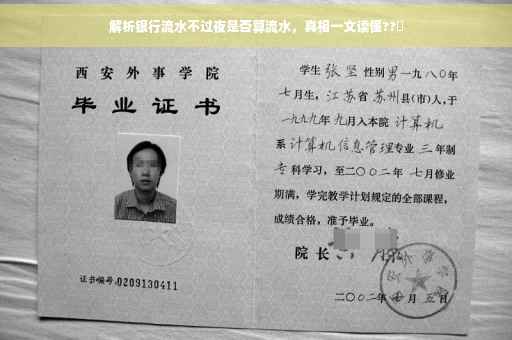 解析银行流水不过夜是否算流水，真相一文读懂??
西安外事学院
毕业证书
证书编号:0209130411
学生 张坚 性别 男 一九八0年
七月生，江苏省 苏州县(市)人,于
一九九九年九月入本院 计算机
系 计算机信息管理专业 三 年制
专科学习，至二〇〇二年 七月修业
期满，学完教学计划规定的全部课程，
成绩合格，准予毕业。
院长
二〇〇二年 月 五日